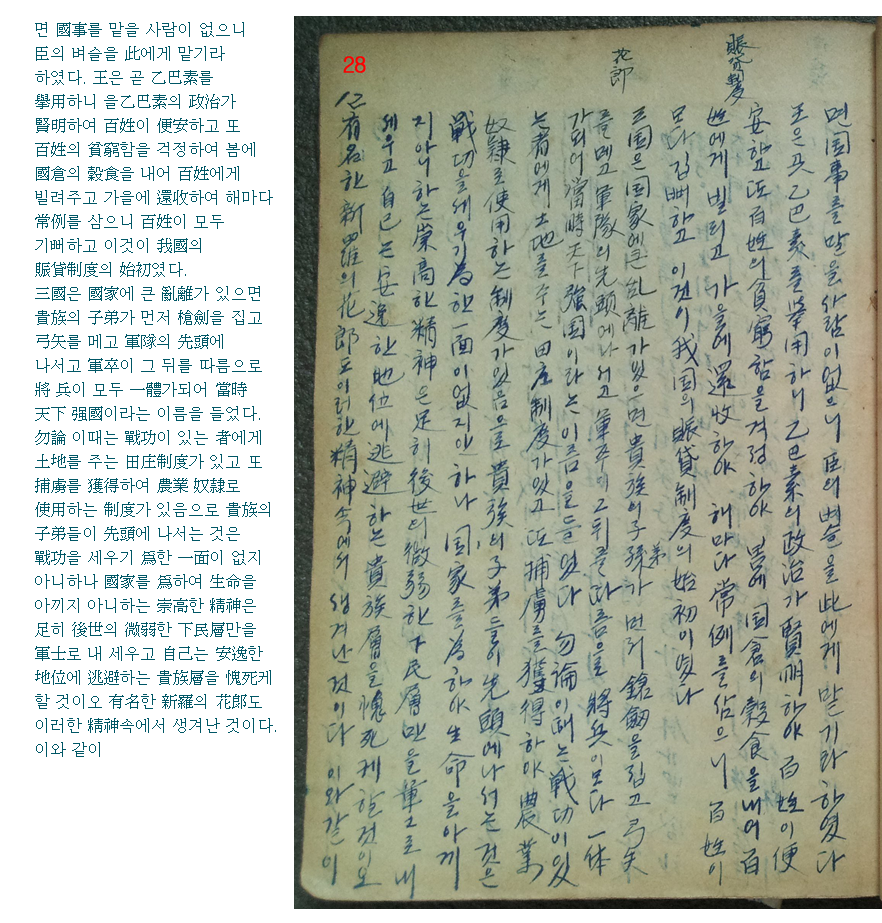 면 國事를 맡을 사람이 없으니
臣의 벼슬을 此에게 맡기라
하였다. 王은 곧 乙巴素를
擧用하니 을乙巴素의 政治가
賢明하여 百姓이 便安하고 또
百姓의 貧窮함을 걱정하여 봄에
國倉의 穀食을 내어 百姓에게
빌려주고 가을에 還收하여 해마다
常例를 삼으니 百姓이 모두
기뻐하고 이것이 我國의
賑貸制度의 始初였다.
三國은 國家에 큰 亂離가 있으면
貴族의 子弟가 먼저 槍劍을 집고
弓矢를 메고 軍隊의 先頭에
나서고 軍卒이 그 뒤를 따름으로
將 兵이 모두 一體가되어 當時
天下 强國이라는 이름을 들었다.
勿論 이때는 戰功이 있는 者에게
土地를 주는 田庄制度가 있고 또
捕虜를 獲得하여 農業 奴隷로
使用하는 制度가 있음으로 貴族의
子弟들이 先頭에 나서는 것은
戰功을 세우기 爲한 一面이 없지
아니하나 國家를 爲하여 生命을
아끼지 아니하는 崇高한 精神은
足히 後世의 微弱한 下民層만을
軍士로 내 세우고 自己는 安逸한
地位에 逃避하는 貴族層을 愧死케
할 것이오 有名한 新羅의 花郎도
이러한 精神속에서 생겨난 것이다.
이와 같이
28
賑貸制度
花郎
면 国事를 맡을 사람이 없으니 臣의 벼슬을 此에게 맡기라 하였다
王은 곳 乙巴素를 擧用하니 乙巴素의 政治가 賢明하야 百姓이 便
安하고 또 百姓의 貧窮함을 걱정하야 봄에 国倉의 穀食을 내여 百
姓에게 빌리고 가을에 還收하야 해마다 常例를 삼으니 百姓이
모다 깁뻐하고 이것이 我国의 賑貸制度의 始初이엿다
三国은 国家에 큰 乱離가 있으면 貴族의 子孫가 먼저 鎗劒을 집고 弓矢
弟
를 메고 軍隊의 先頭에 나서고 軍卒이 그 뒤를 따름으로 將兵이 모다 一体
가 되어 當時 天下 強国이라는 이름을 들었다 勿論 이때는 戦功이 있
는 者에게 土地를 주는 田庄制度가 있고 또 捕虜를 獲得하야 農業
奴隷로 使用하는 制度가 있음으로 貴族의 子弟들이 先頭에 나서는 것은
戦功을 세우기 為한 一面이 없지안하나 国家를 為하야 生命을 아끼
지 아니하는 崇高한 精神은 足히 後世의 微弱한 下民層만을 軍士로 내
세우고 自己는 安逸한 地位에 逃避하는 貴族層을 愧死케 할 것이오
有名한 新羅의 花郎도 이러한 精神속에서 생겨난 것이다 이와 같이